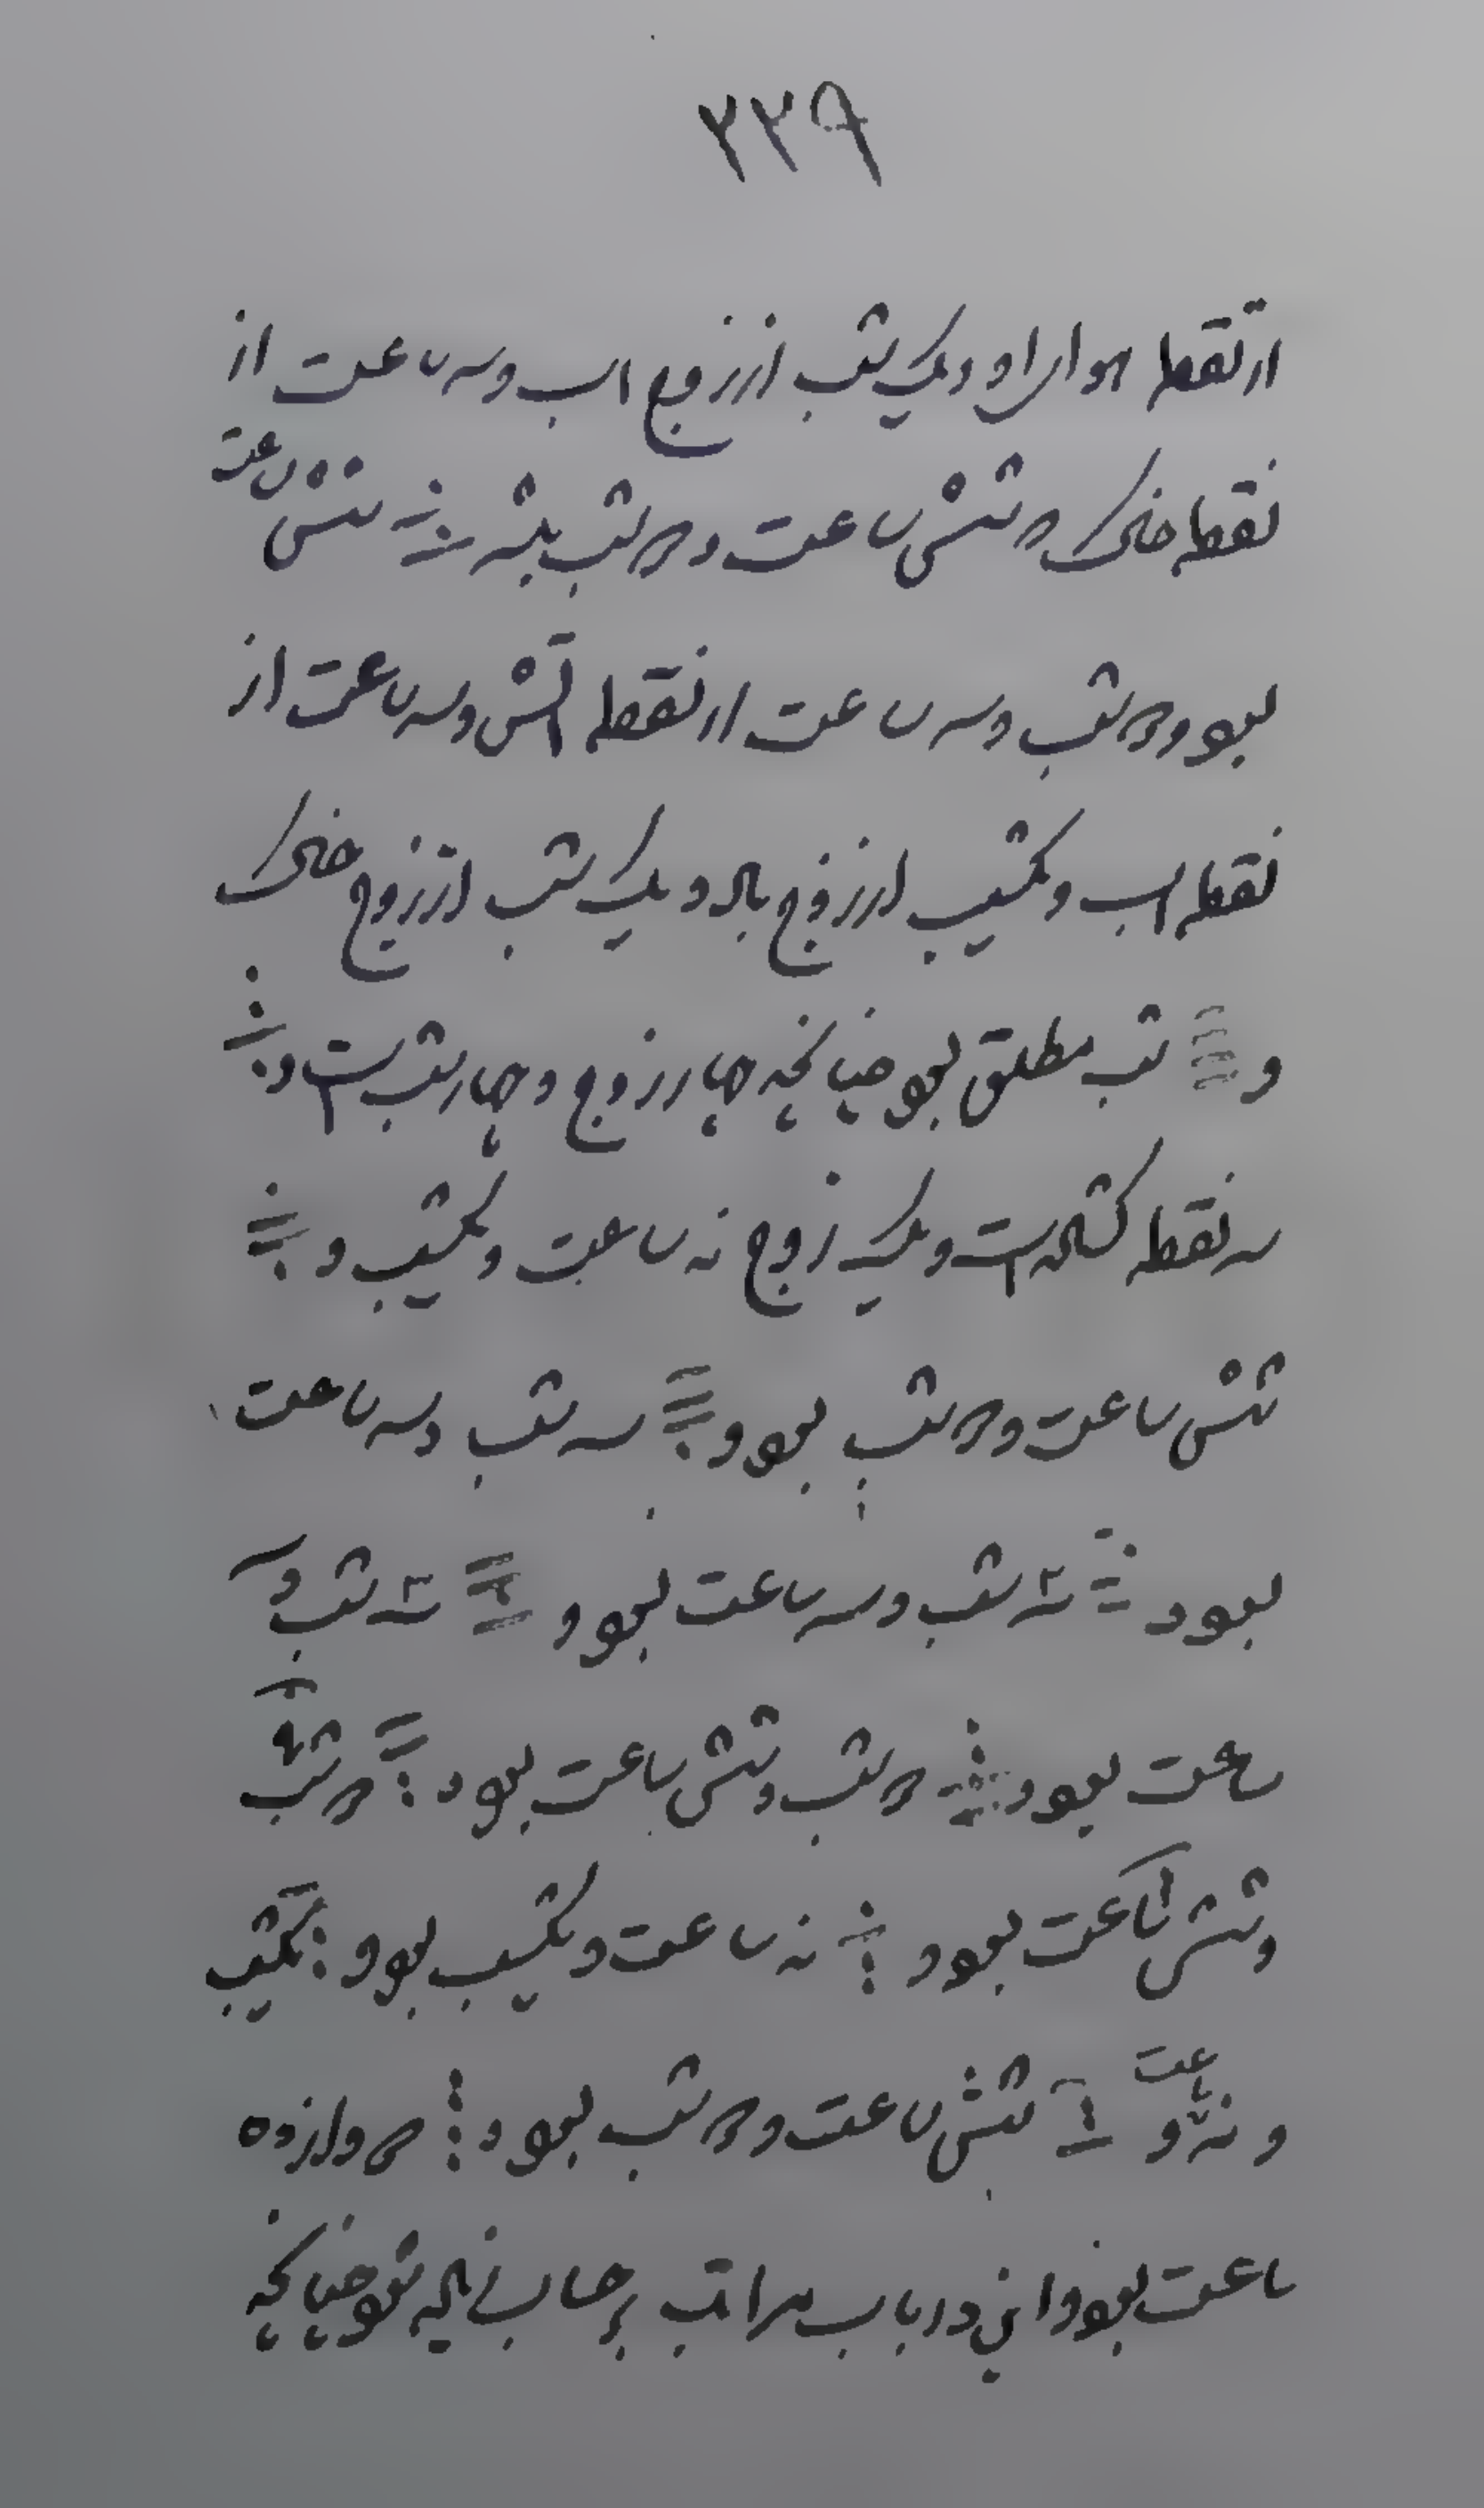 ۲۳۹
از نقطه هوا را و و یک شب از زوج اب و سه ساعت از
نقطه خاک و شش ساعت و دو شب بیشتر نه شش ساعت
بود و دو شب و سه ساعت از نقطه آتش و سه ساعت از
نقطه اب و یکشب از زوج باد و یک شب از زوج خاک
و شب مطلق بود چنانچه چهار زوج و چهار شبست و
سه نقطه کشاده است و یک زوج نه ساعت و یکشب و
شش ساعت و دو شب بود و سه شب و سه ساعت
بود و سه شب و سه ساعت بود و سه شب و سه
ساعت بود و دو شب و شش ساعت بود و دو شب
و شش ساعت بود نه ساعت و یکشب بود و یکشب
و نه ساعت و شش ساعت و دو شب بود و دوازده
ساعت بود و این در باب مراتب بر حساب نه شود چنانچه